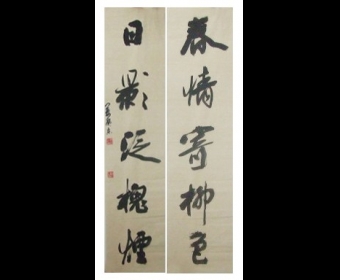 春情寄柳色
日影泛槐煙